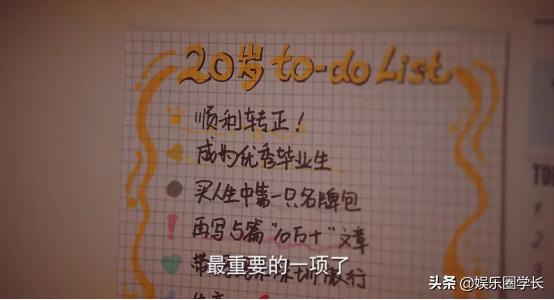 20岁 to-do List
顺利转正！
成为优秀毕业生
买人生中第一只名牌包
再写5篇"10万+"文章
带
旅行
最重要的一项了
TO
1.
2.
头条 @娱乐圈学长